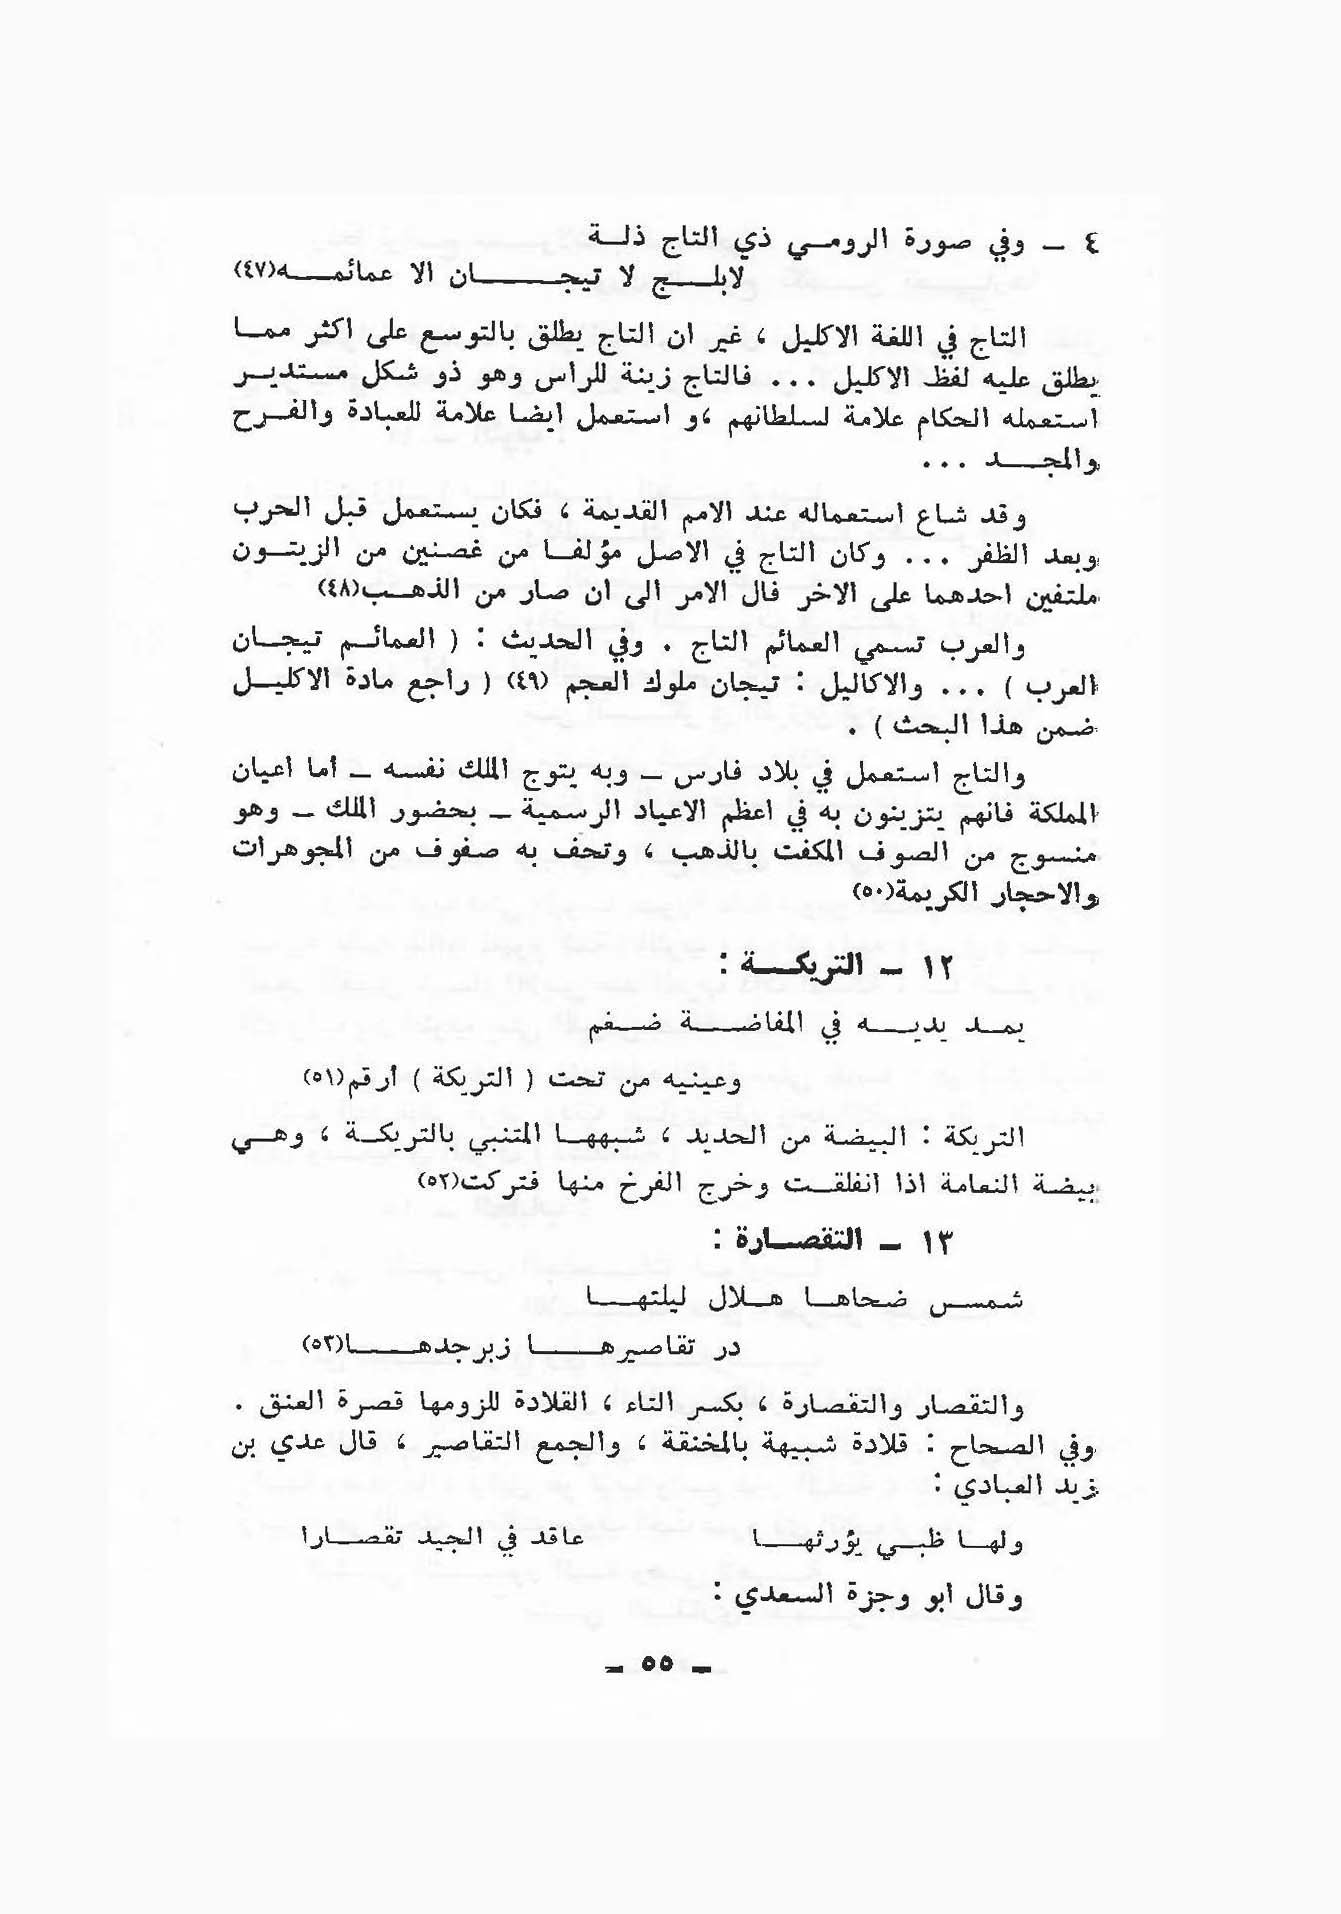 ٤ ــ وفي صورة الرومي ذي التاج ذلة
لابلج لا تيجان الا عمائمه(٤٧)
التاج في اللغة الاكليل ، غير ان التاج يطلق بالتوسع على اكثر مما
يطلق عليه لفظ الاكليل ... فالتاج زينة للراس وهو ذو شكل مستدير
استعمله الحكام علامة لسلطانهم ،و استعمل ايضا علامة للعبادة والفرح
والمجد ...
وقد شاع استعماله عند الامم القديمة ، فكان يستعمل قبل الحرب
وبعد الظفر ... وكان التاج في الاصل مؤلفا من غصنين من الزيتون
ملتفين احدهما على الاخر فال الامر الى ان صار من الذهب(٤٨)
والعرب تسمي العمائم التاج . وفي الحديث : ( العمائم تيجان
العرب ) ... والاكاليل : تيجان ملوك العجم (٤٩) ( راجع مادة الاكليل
ضمن هذا البحث ) .
والتاج استعمل في بلاد فارس ــ وبه يتوج الملك نفسه ــ أما اعيان
المملكة فانهم يتزينون به في اعظم الاعياد الرسمية ــ بحضور الملك ــ وهو
منسوج من الصوف المكفت بالذهب ، وتحف به صفوف من المجوهرات
والاحجار الكريمة(٥٠)
١٢ ــ التريكة :
يمد يديه في المفاضة ضغم
وعينيه من تحت ( التريكة ) أرقم(٥١)
التريكة : البيضة من الحديد ، شبهها المتنبي بالتريكة ، وهي
بيضة النعامة اذا انفلقت وخرج الفرخ منها فتركت(٥٢)
١٣ ــ التقصارة :
شمس ضحاها هلال ليلتها
در تقاصيرها زبرجدها(٥٣)
والتقصار والتقصارة ، بكسر التاء ، القلادة للزومها قصرة العنق .
وفي الصحاح : قلادة شبيهة بالمخنقة ، والجمع التقاصير ، قال عدي بن
زيد العبادي :
ولها ظبي يؤرثها عاقد في الجيد تقصارا
وقال ابو وجزة السعدي :
ــ ٥٥ ــ